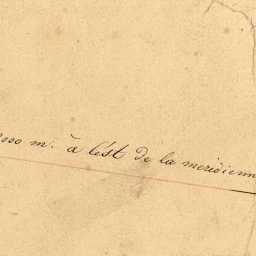 m. à l'est de la meridienn